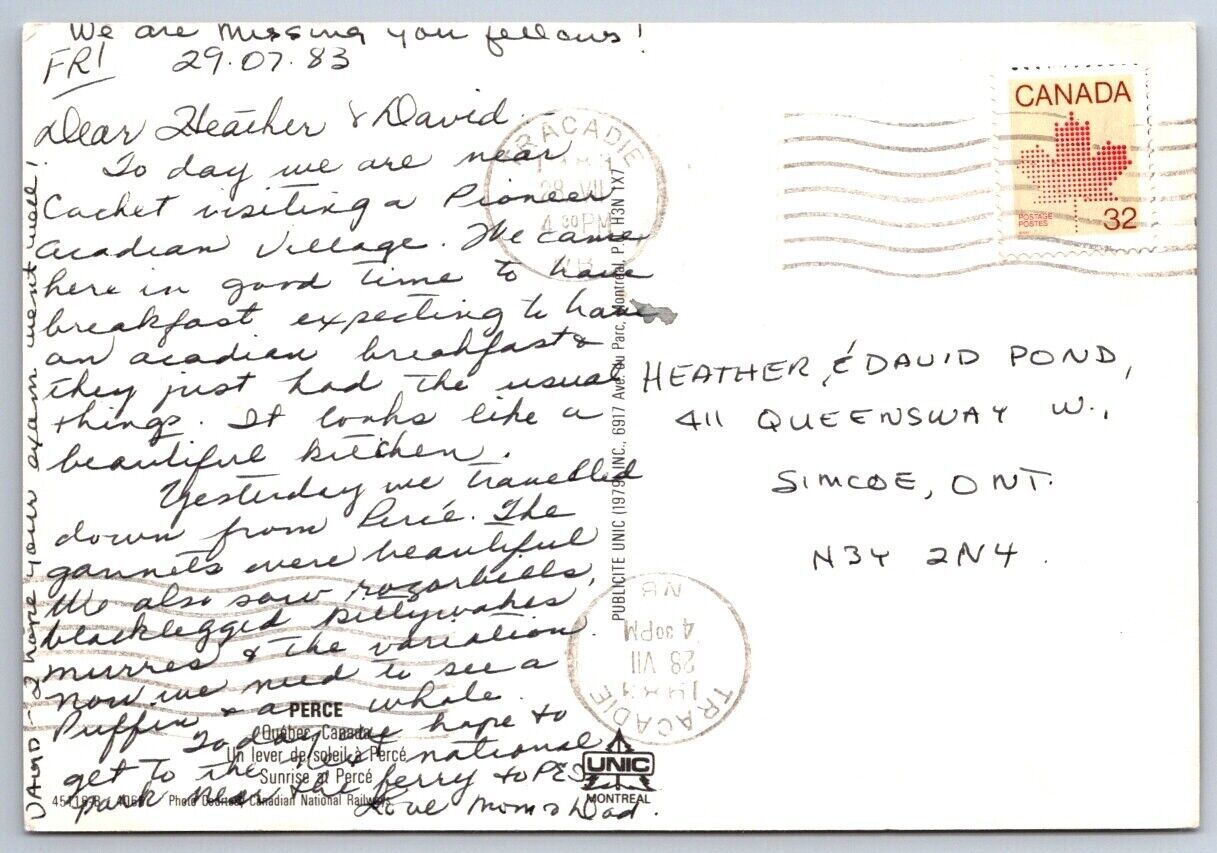 We are missing you fellows!
FRI 29.07.83
Dear Heather & David.
To day we are near
Cachet visiting a Pioneer
Acadian Village. We came
here in good time to have
breakfast expecting to have
an acadian breakfast &
they just had the usual
things. It looks like a
beautiful kitchen.
Yesterday we travelled
down from Percé. The
gannets were beautiful
We also saw razorbills,
blacklegged kittywakes
murres & the variation.
Now we need to see a
Puffin & a whale.
Today we hope to
get to the new national
park near the ferry to PEI
Love Mom & Dad.
DAVID - I hope your exam went well!
PERCE
Québec, Canada
Un lever de soleil à Percé
Sunrise at Percé
Photo Courtesy Canadian National Railways
PUBLICITE UNIC (1979) INC., 6917 Ave. du Parc, Montréal, P.Q. H3N 1X7
UNIC
MONTREAL
TRACADIE
28 VII
4 30 PM
NB
CANADA
POSTAGE
POSTES
32
HEATHER & DAVID POND,
411 QUEENSWAY W.,
SIMCOE, ONT.
N3Y 2N4.
TRACADIE
1983
28 VII
4 30 PM
NB